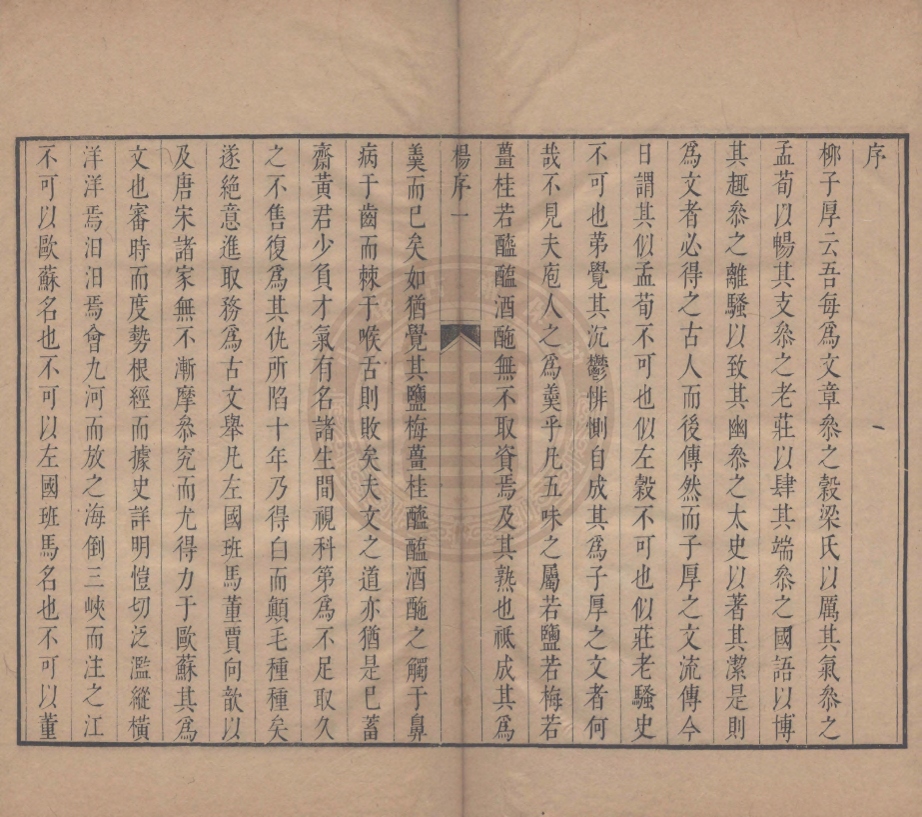 序
柳子厚云吾每爲文章叅之穀梁氏以厲其氣叅之
孟荀以暢其支叅之老莊以肆其端叅之國語以博
其趣叅之離騷以致其幽叅之太史以著其潔是則
爲文者必得之古人而後傳然而子厚之文流傳今
日謂其似孟荀不可也似左穀不可也似莊老騷史
不可也弟覺其沉鬱悱惻自成其爲子厚之文者何
哉不見夫庖人之爲羹乎凡五味之屬若鹽若梅若
薑桂若醯醢酒酏無不取資焉及其熟也祗成其爲
楊序一
羹而已矣如猶覺其鹽梅薑桂醯醢酒酏之觸于鼻
病于齒而棘于喉舌則敗矣夫文之道亦猶是已蓄
齋黃君少負才氣有名諸生間視科第爲不足取久
之不售復爲其仇所陷十年乃得白而顛毛種種矣
遂絶意進取務爲古文舉凡左國班馬董賈向歆以
及唐宋諸家無不漸摩叅究而尤得力于歐蘇其爲
文也審時而度勢根經而據史詳明愷切泛濫縱橫
洋洋焉汨汨焉會九河而放之海倒三峽而注之江
不可以歐蘇名也不可以左國班馬名也不可以董